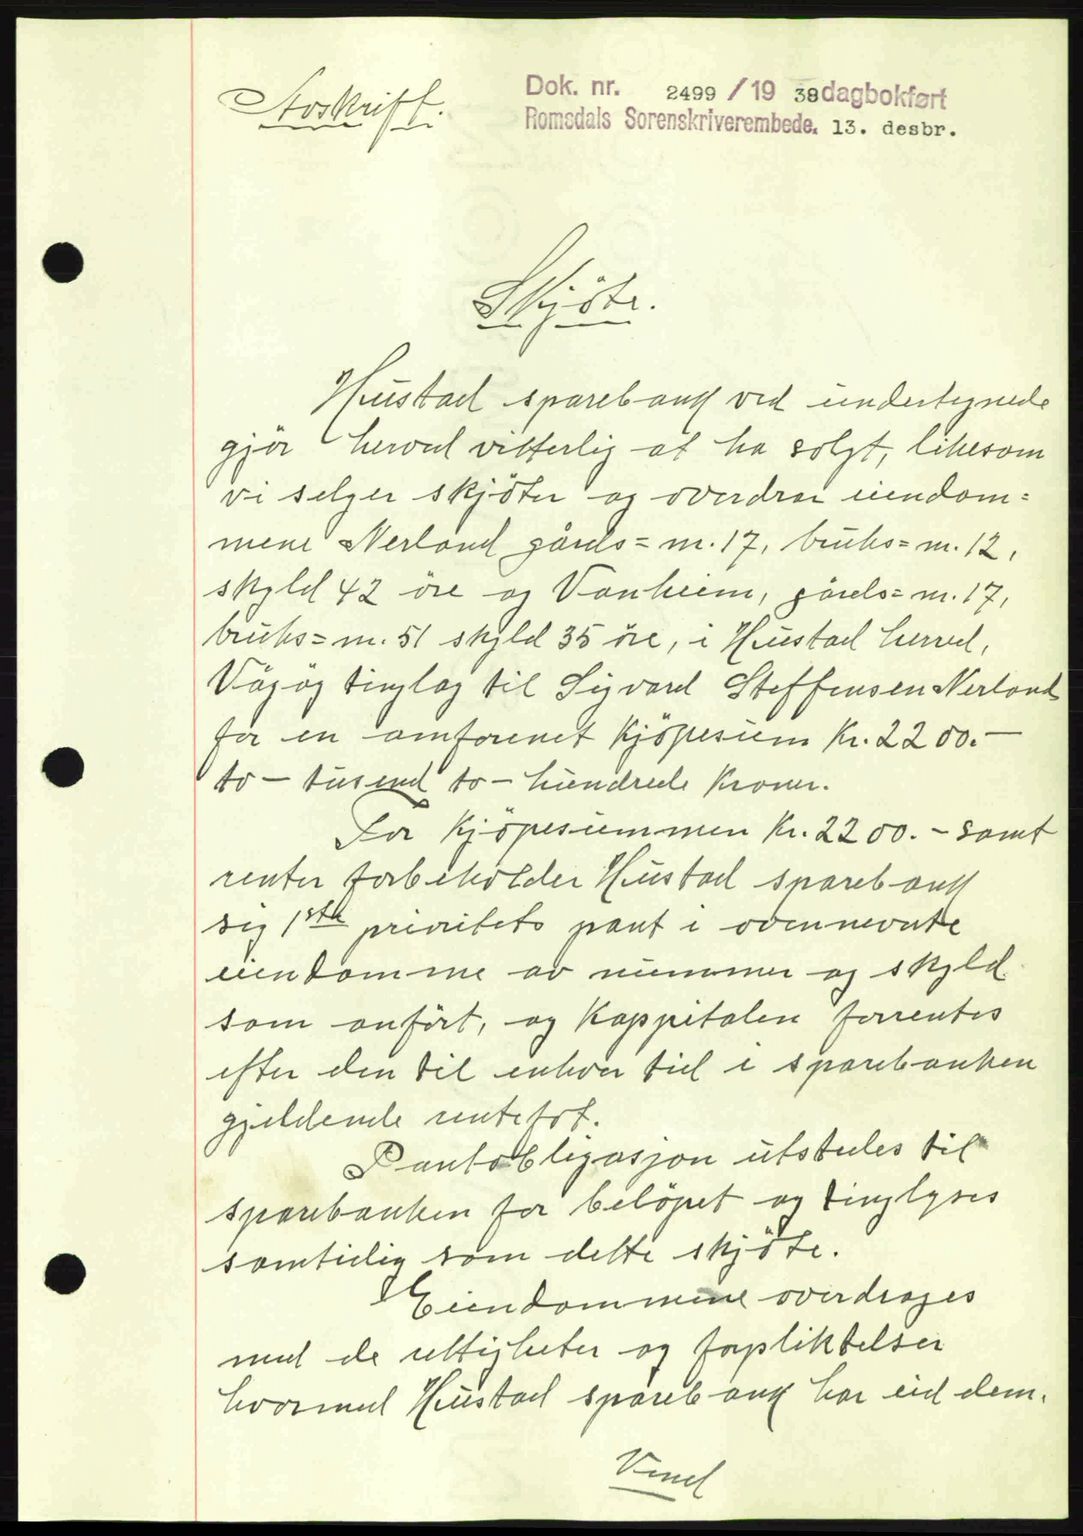 Avskrift.
Dok. nr. 2499 / 19 38 dagbokført
Romsdals Sorenskriverembede. 13. desbr.
Skjöte.
Hustad sparebank ved undertegnede
gjör herved vitterlig at ha solgt, likesom
vi selger skjöter og overdrar eiendom=
mene Nerland gårds=nr. 17, bruks=nr. 12,
skyld 42 öre og Vonheim, gårds=nr. 17,
bruks=nr. 51 skyld 35 öre, i Hustad herred,
Vågöy tinglag til Sigvard Steffensen Nerland
for en omforenet kjöpesum kr. 2200.-
to-tusend to-hundrede kroner.
For kjöpesummen kr. 2200.- samt
renter forbeholder Hustad sparebank
sig 1ste prioritets pant i ovennevnte
eiendomme av nummer og skyld
som anfört, og kappitalen forrentes
efter den til enhver tid i sparebanken
gjeldende rentefot.
Pantobligasjon utstedes til
sparebanken for belöpet og tinglyses
samtidig som dette skjöte.
Eiendommene overdrages
med de rettigheter og forpliktelser
hvormed Hustad sparebank har eid dem.
Vend